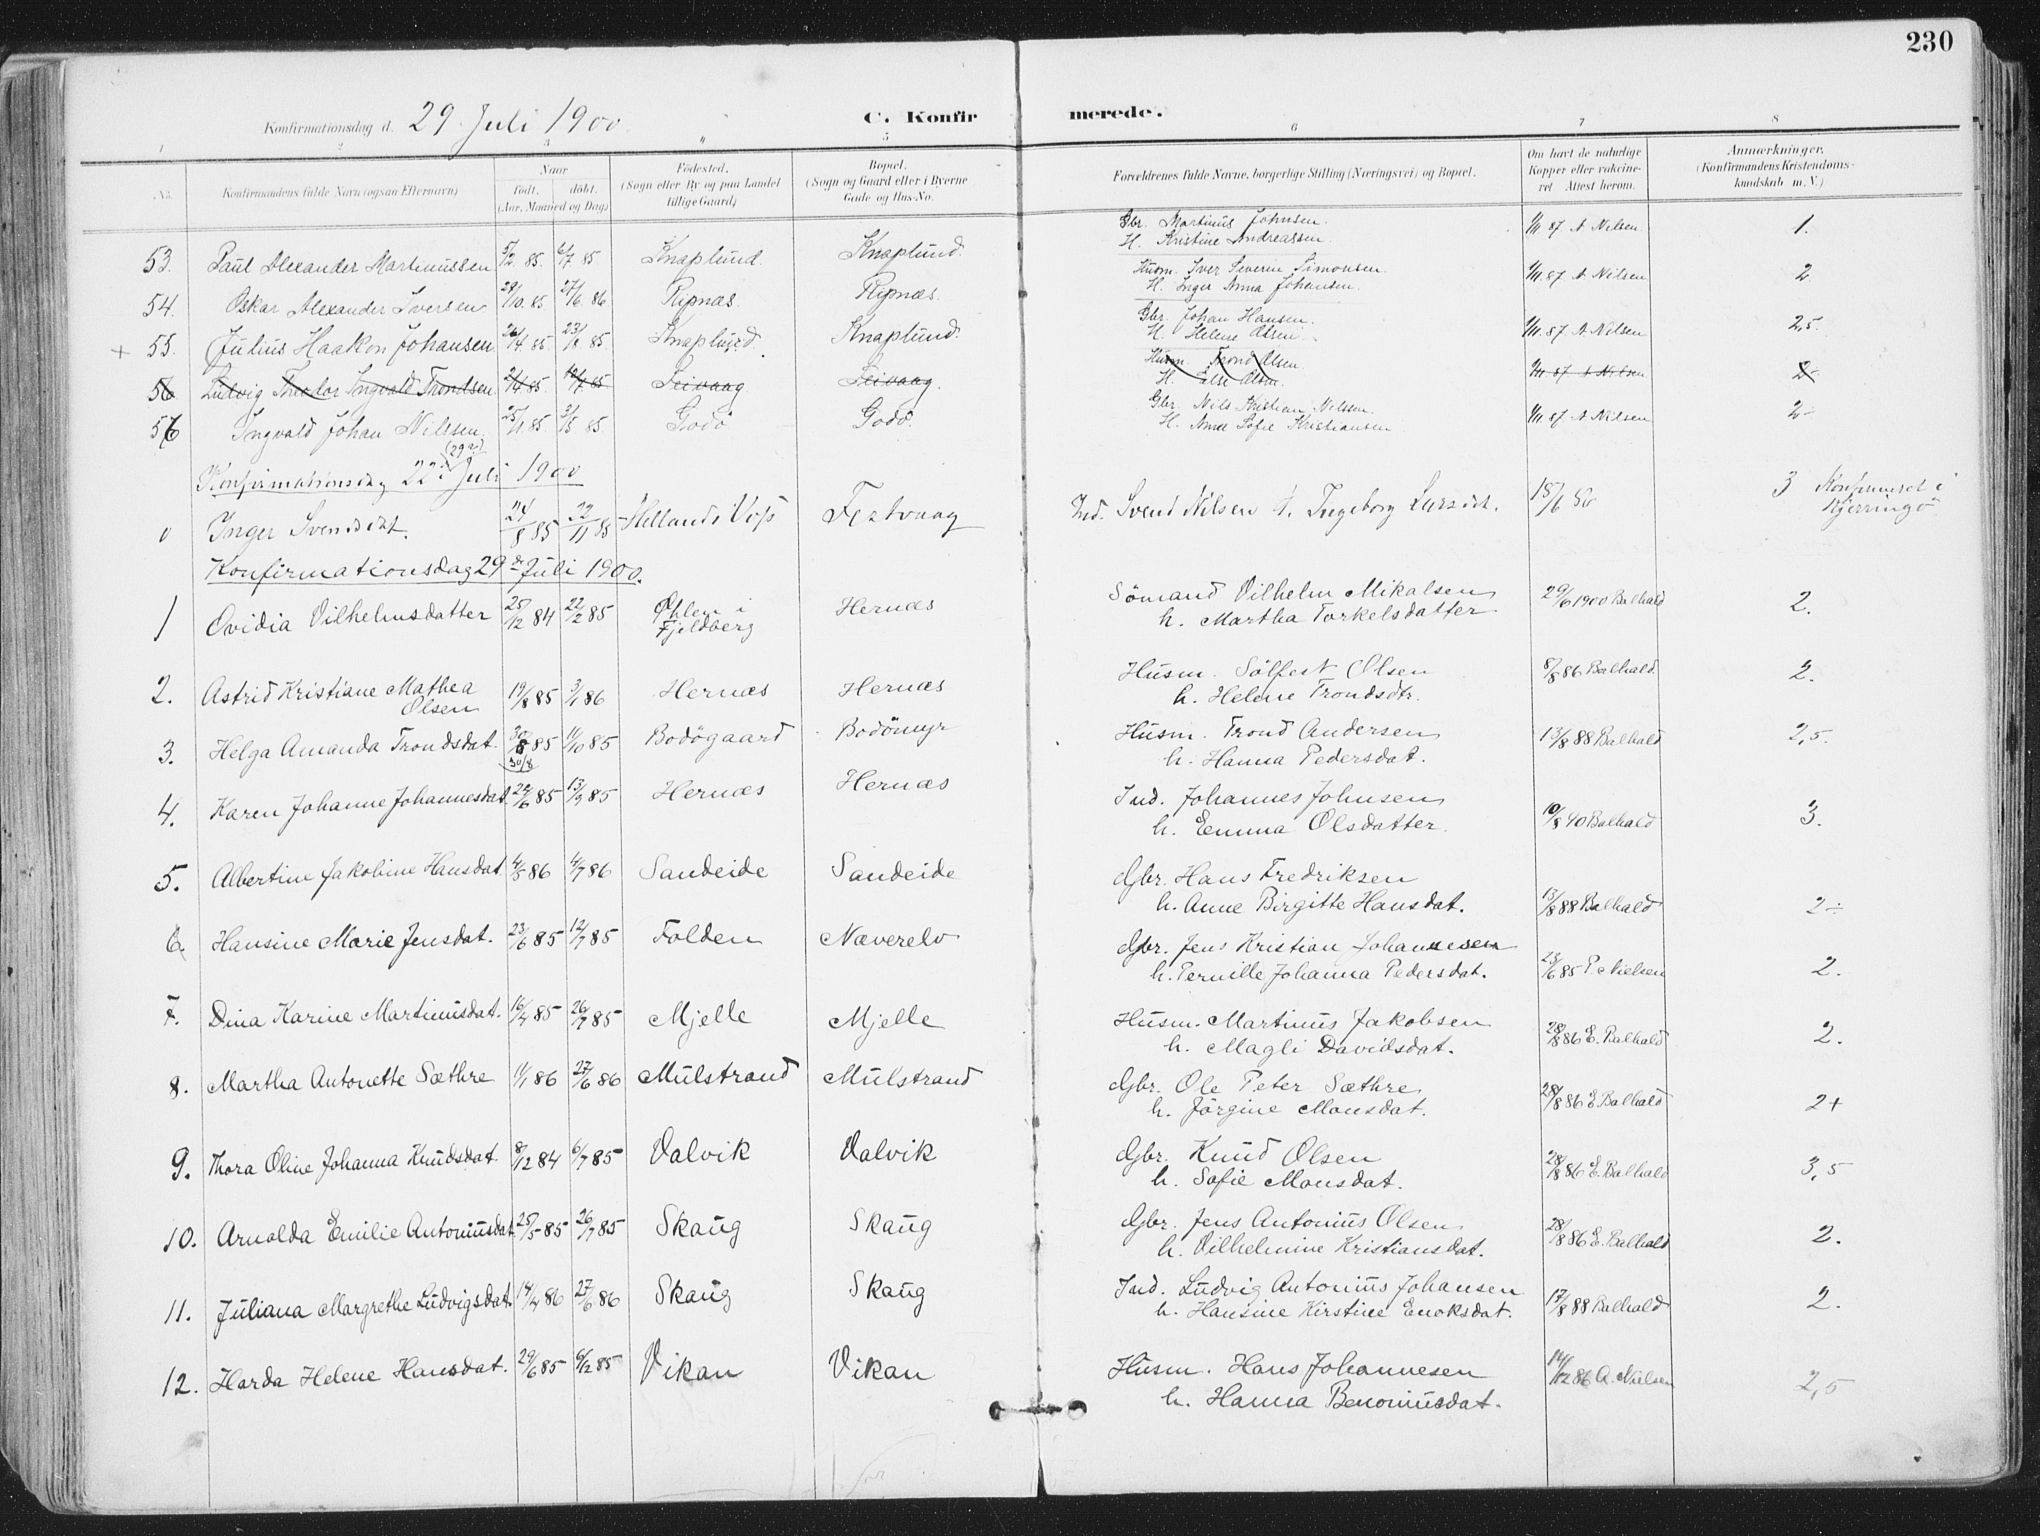 230
Konfirmationsdag d. 29 Juli 1900.
C. Konfirmerede.
1 2 3 4 5 6 7 8
No.
Konfirmandens fulde Navn (ogsaa Efternavn)
Naar
født. døbt.
(Aar, Maaned og Dag)
Fødested.
(Sogn eller By og paa Landet
tillige Gaard)
Bopæl.
(Sogn og Gaard eller i Byerne
Gade og Hus-No.
Forældrenes fulde Navne, borgerlige Stilling (Næringsvei) og Bopæl.
Om havt de naturlige
Kopper eller vakcine-
ret Attest herom.
Anmærkninger.
(Konfirmandens Kristendoms-
kundskab m. V.)
53. Paul Alexander Martinussen 5/2. 85. 6/7 85 Knaplund. Knaplund. Gbr. Martinus Johnsen. H. Kristine Andreassen. 1/11 87 A Nilsen 1.
54. Oskar Alexander Iversen 28/10. 85 27/6. 86 Ripnæs. Ripnæs. Husm. Iver Severin Simonsen. H. Inger Anna Johansen. 1/11. 87 A Nilsen 2
+ 55. Julius Haakon Johansen 26/4. 85. 23/8 85 Knaplund. Knaplund. Gbr. Johan Hansen. H. Helene Olsen. 1/11. 87 A Nilsen 2,5.
56 Ludvig Theodor Ingvald Trondsen 85. 85 Seivaag Seivaag. Husm. Trond Olsen. H. Else Olsen. 1/11. 87 A Nilsen 2
56 Ingvald Johan Nilssen 25/1 85 3/5 85 Godö Godö. Gbr. Nils Kristian Nilssen. H. Anne Sofie Kristiansen 1/11 87 A Nilsen 2÷
(29de)
Konfirmationsdag 22de Juli 1900
0 Inger Svendsdat. 24/8 85 22/11 85 Hellands Vos Festvaag Ind. Svend Nilsen & Ingeborg Larsdt. 15/6 3 Konfirmeret i
Kjerringö
Konfirmationsdag 29de Juli 1900.
1 Ovidia Vilhelmsdatter 25/12 84 22/2 85 Ølen i
Fjeldberg Hernæs Sömand Vilhelm Mikalsen
h. Martha Torkelsdatter 29/6 1900 Balhald 2.
2. Astrid Kristiane Mathea
Olsen 19/8 85 3/1 86 Hernæs Hernæs Husm. Sölfest Olsen
h. Helene Trondsdtr. 8/8 86 Balhald. 2.
3. Helga Amanda Trondsdat. 30/8 85 11/10 85 Bodögaard Bodömyr Husm. Trond Andersen
30/8
h. Hanna Pedersdat. 13/8 88 Balhald 2,5.
4. Karen Johanne Johannesdat. 22/6 85 13/9 85 Hernæs Hernæs Ind. Johannes Johnsen
h. Emma Olsdatter. 10/8 40 Balhald 3.
5. Albertine Jakobine Hansdat 4/5 86 4/7 86 Sandeide Sandeide Gbr. Hans Fredriksen
h. Anne Birgitte Hansdat. 13/8 88 Balhald 2÷
6. Hansine Marie Jensdat. 23/6 85 12/7 85 Folden Næverelv Gbr. Jens Kristian Johannesen
h. Pernille Johanna Pedersdat. 23/6 85 P. Nielsen 2.
7. Dina Karine Martinusdat. 16/4 85 26/7 85 Mjelle Mjelle Husm. Martinus Jakobsen
h. Magli Davidsdat. 28/8 86 E. Balhald 2.
8. Martha Antonette Sæthre 11/1 86 27/6 86 Mulstrand Mulstrand Gbr. Ole Peter Sæthre
h. Jörgine Monsdat. 28/8 86 E Balhald 2+
9. Thora Oline Johanna Knudsdat. 8/12 84 6/7 85 Valvik Valvik Gbr. Knud Olsen
h. Sofie Monsdat. 28/8 86 E. Balhald 3,5
10. Arnolda Emilie Antoniusdat 25/5 85 26/7 85 Skaug Skaug Gbr. Jens Antonius Olsen
h. Vilhelmine Kristiansdat. 28/8 86 E. Balhald 2.
11. Juliana Margrethe Ludvigsdat. 14/4 86 27/6 86 Skaug Skaug Ind. Ludvig Antonius Johansen
h. Hansine Kirstine Enoksdat. 17/8 88 Balhald 2.
12. Harda Helene Hansdat. 29/6 85 6/12 85 Vikan Vikan Husm. Hans Johannesen
h. Hanna Benoniusdat. 14/12 86 A. Nielsen 2,5